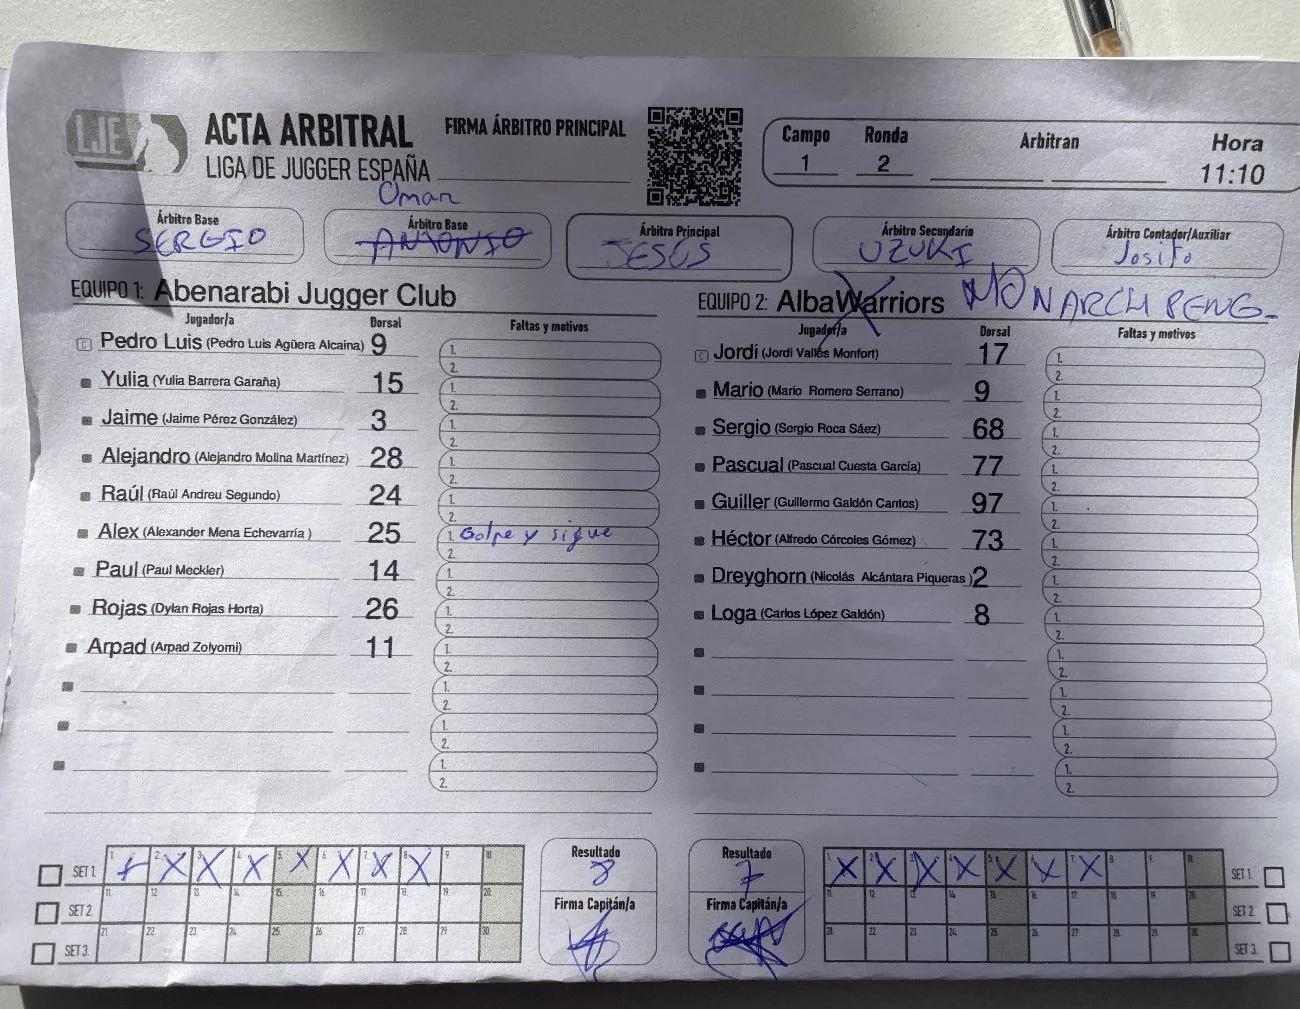 LJE
ACTA ARBITRAL
LIGA DE JUGGER ESPAÑA
FIRMA ÁRBITRO PRINCIPAL
Campo Ronda Arbitran Hora
1 2 11:10
Omar
Árbitro Base Árbitro Base Árbitro Principal Árbitro Secundario Árbitro Contador/Auxiliar
SERGIO ANTONIO JESÚS UZUKI Josito
EQUIPO 1: Abenarabi Jugger Club
Jugador/a Dorsal Faltas y motivos
C Pedro Luis (Pedro Luis Agüera Alcaina) 9 1. 2.
Yulia (Yulia Barrera Garaña) 15 1. 2.
Jaime (Jaime Pérez González) 3 1. 2.
Alejandro (Alejandro Molina Martínez) 28 1. 2.
Raúl (Raúl Andreu Segundo) 24 1. 2.
Alex (Alexander Mena Echevarría ) 25 1. Golpe y sigue 2.
Paul (Paul Meckler) 14 1. 2.
Rojas (Dylan Rojas Horta) 26 1. 2.
Arpad (Arpad Zolyomi) 11 1. 2.
1. 2.
1. 2.
1. 2.
EQUIPO 2: AlbaWarriors MONARCH PENG.
Jugador/a Dorsal Faltas y motivos
C Jordi (Jordi Vallés Monfort) 17 1. 2.
Mario (Mario Romero Serrano) 9 1. 2.
Sergio (Sergio Roca Sáez) 68 1. 2.
Pascual (Pascual Cuesta García) 77 1. 2.
Guiller (Guillermo Galdón Cantos) 97 1. 2.
Héctor (Alfredo Córcoles Gómez) 73 1. 2.
Dreyghorn (Nicolás Alcántara Piqueras ) 2 1. 2.
Loga (Carlos López Galdón) 8 1. 2.
1. 2.
1. 2.
1. 2.
1. 2.
SET 1. 1 2 3 4 5 6 7 8 9 10
SET 2. 11 12 13 14 15 16 17 18 19 20
SET 3. 21 22 23 24 25 26 27 28 29 30
Resultado
8
Firma Capitán/a
Resultado
7
Firma Capitán/a
1 2 3 4 5 6 7 8 9 10 SET 1.
11 12 13 14 15 16 17 18 19 20 SET 2.
21 22 23 24 25 26 27 28 29 30 SET 3.